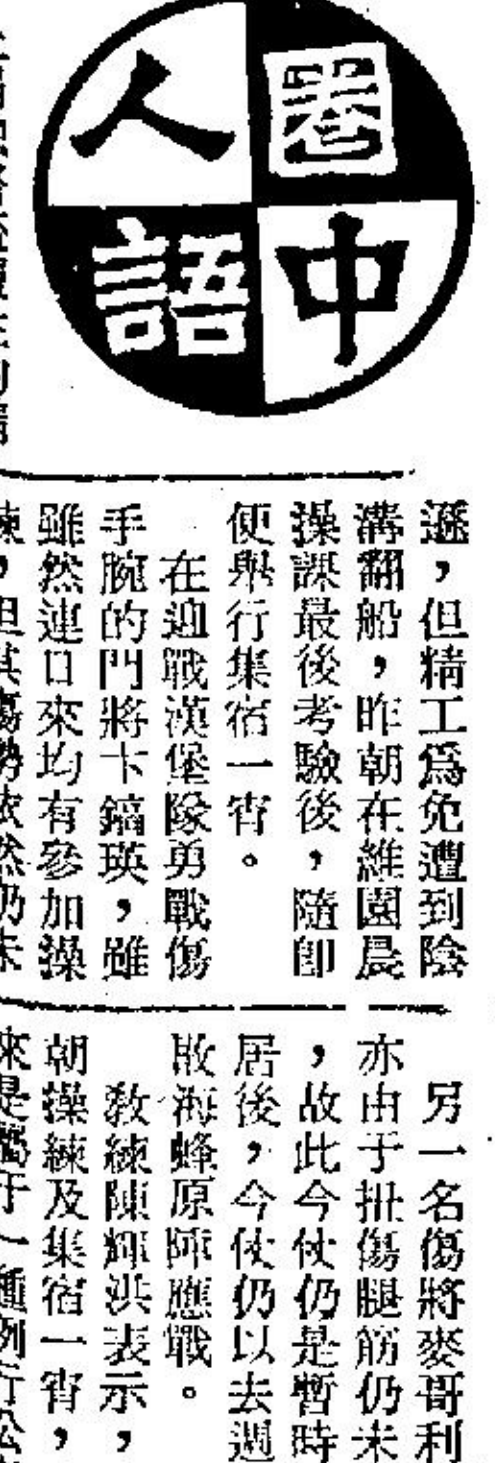 圈中人語
遜，但精工爲免遭到陰
溝翻船，昨朝在維園晨
操課最後考驗後，隨卽
便舉行集宿一宵。
在迎戰漢堡隊勇戰傷
手腕的門將卞鏑瑛，雖
雖然連日來均有參加操
練，但其傷勢依然仍未
另一名傷將麥哥利
亦由于扯傷腿筋仍未
，故此今仗仍是暫時
居後，今仗仍以去週
敗海蜂原陣應戰。
敎練陳輝洪表示，
朝操練及集宿一宵，
來是屬于一種例行公